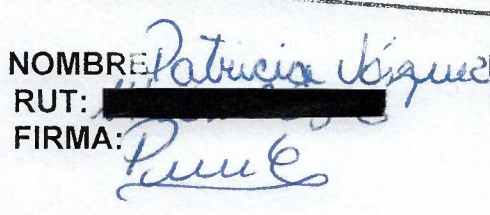 NOMBRE: Patricia Vásquez
RUT:
FIRMA: